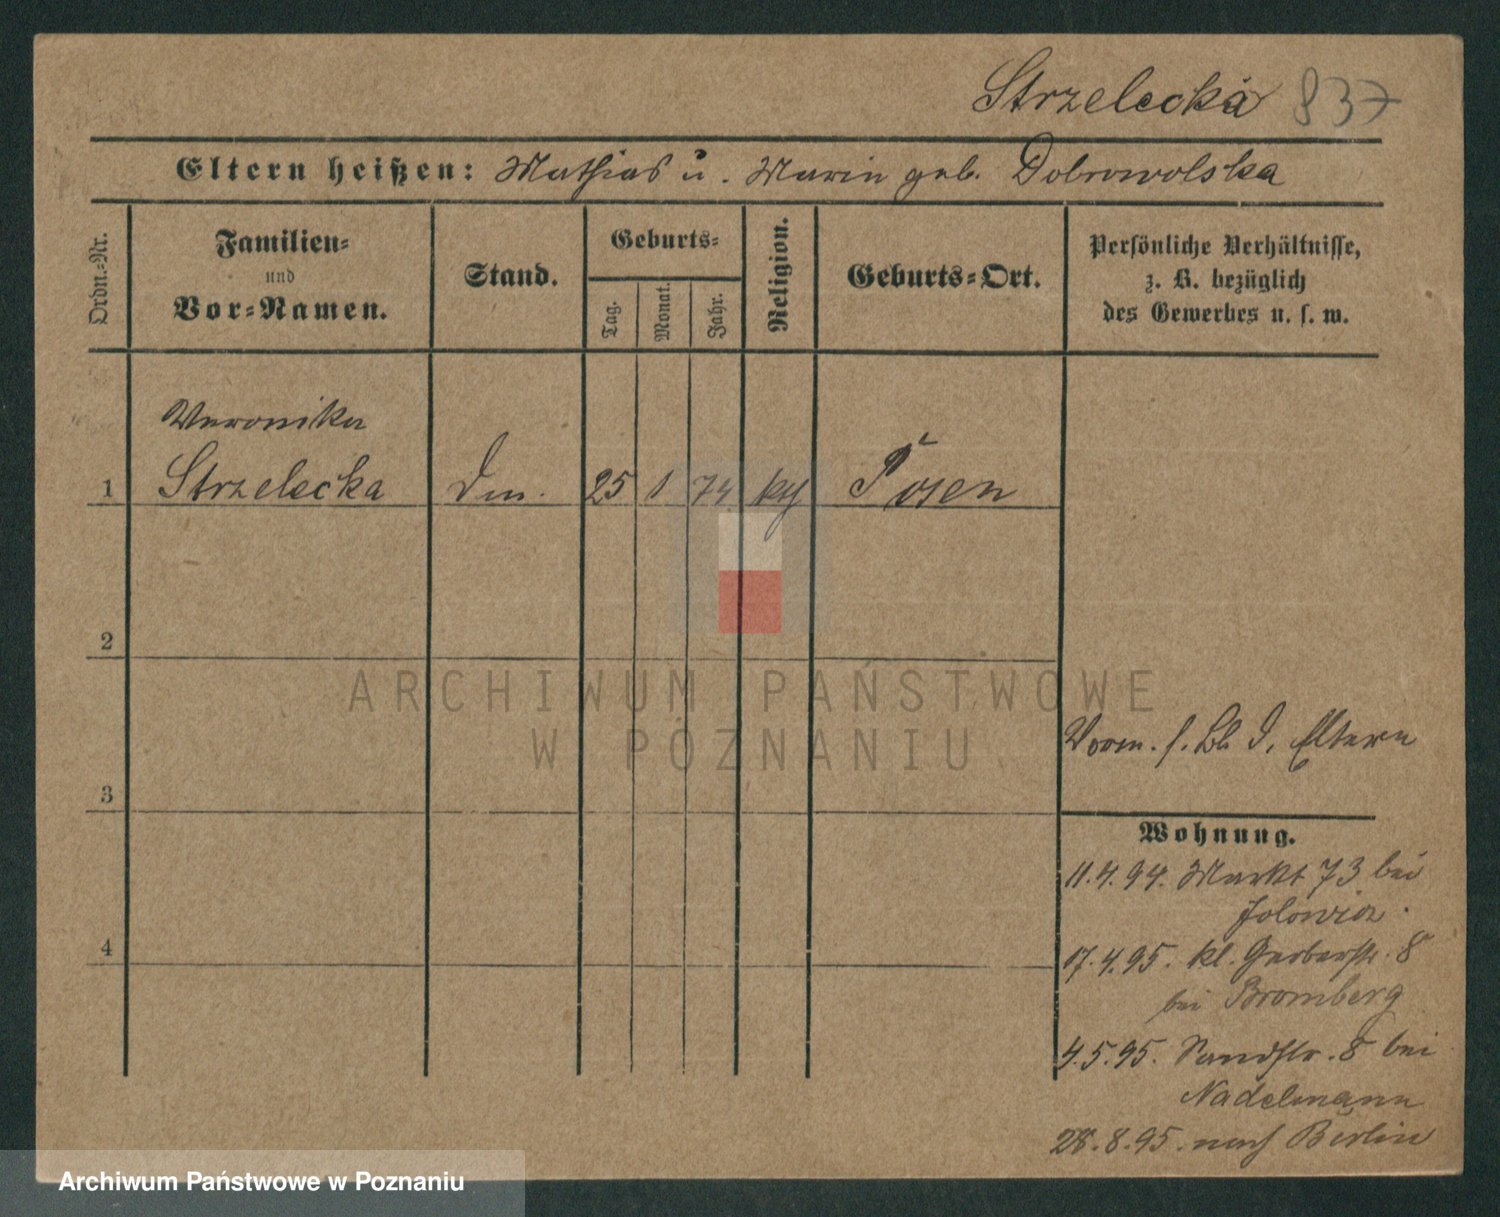 Strzelecka 837
Eltern heißen: Mathias u. Marie geb. Dobrowolska
Ordn.-Nr.
Familien-
und
Vor-Namen.
Stand.
Geburts-
Tag.
Monat.
Jahr.
Religion.
Geburts-Ort.
Persönliche Verhältnisse,
z. B. bezüglich
des Gewerbes u. s. w.
Veronika
1 Strzelecka 25 1 74 Posen
2
3
4
ARCHIWUM PAŃSTWOWE
W POZNANIU
Vorm. s. Bl. d. Eltern
Wohnung.
11.4.94. Markt 73 bei
Jolowicz.
17.4.95. kl. Gerberstr. 8
bei Bromberg
4.5.95. Sandstr. 8 bei
Nadelmann
28.8.95. nach Berlin
Archiwum Państwowe w Poznaniu